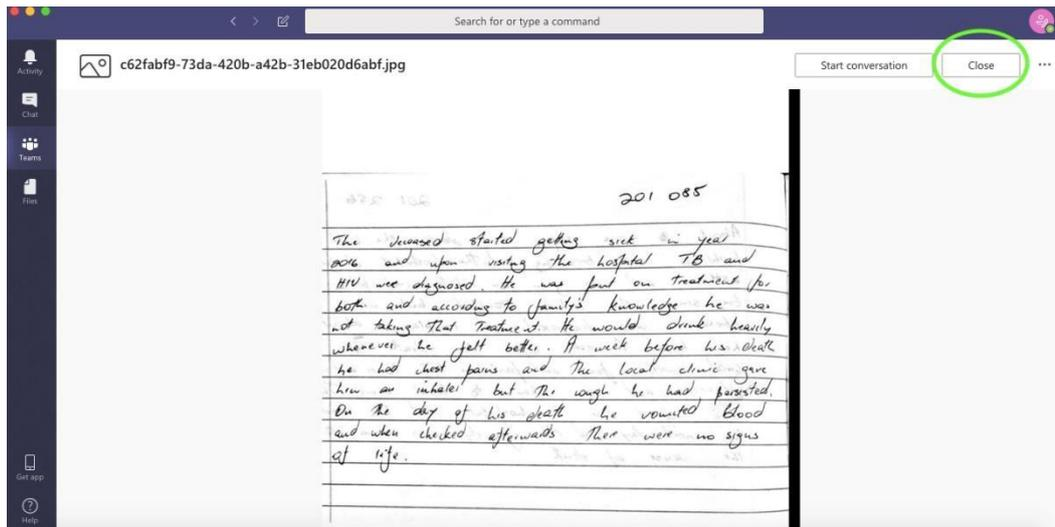 Search for or type a command
Activity
Chat
Teams
Files
Get app
Help
c62fabf9-73da-420b-a42b-31eb020d6abf.jpg
Start conversation
Close
...
201 085
The deceased started getting sick in year
2016 and upon visiting the hospital TB and
HIV wee diagnosed. He was put on Treatment for
both and according to family's knowledge he was
not taking That Treatment. He would drink heavily
whenever he felt better. A week before his death
he had chest pains and The local clinic gave
him an inhaler but The cough he had persisted.
On The day of his death he vomited blood
and when checked afterwards There were no signs
of life.